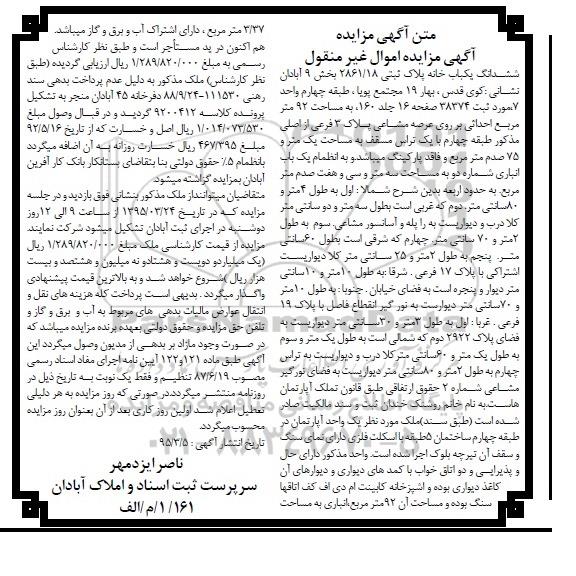 متن آگهی مزایده
آگهی مزایده اموال غیر منقول
ششدانگ یکباب خانه پلاک ثبتی ۲۸۶۱/۱۸ بخش ۹ آبادان
نشانی :کوی قدس ، بهار ۱۹ مجتمع پویا ، طبقه چهارم واحد
۷مورد ثبت ۳۸۳۷۴ صفحه ۱۶ جلد ۱۶۰، به مساحت ۹۲ متر
مربع احداثی بر روی عرصه مشاعی پلاک ۳ فرعی از اصلی
مذکور طبقه چهارم با یک تراس مسقف به مساحت یک متر و
۷۵ صدم متر مربع و فاقد پارکینگ میباشد و به انظمام یک باب
انباری شماره دو به مساحت سه متر و سی و هفت صدم متر
مربع. به حدود اربعه بدین شرح شمالا : اول به طول ۴متر و
۸۰سانتی متر. دوم که غربی است بطول سه متر و دو سانتی متر
کلا درب و دیواریست به را پله و آسانسور مشاعی. سوم به طول
۲متر و ۷۰ سانتی متر. چهارم که شرقی است بطول ۶۰سانتی
متر. پنجم به طول ۲متر و ۲۵ سانتی متر کلا دیواریست
اشتراکی با پلاک ۱۷ فرعی . شرقا :به طول ۱۰متر و ۱۰سانتی
متر دیوار و پنجره است به فضای خیابان . جنوبا : به طول ۱۰متر
و ۷۰سانتی متر دیوارست به نور گیر انقطاع فاصل با پلاک ۱۹
فرعی . غربا : اول به طول ۳متر و ۳۰سانتی متر دیواریست به
فضای پلاک ۲۹۲۲ دوم که شمالی است به طول یک متر و سوم
به طول یک متر و ۶۰سانتی مترکلا درب و دیواریست به تراس
چهارم به طول ۲متر و ۸۰سانتی متر دیواریست به فضای نورگیر
مشاعی شماره ۲ حقوق ارتفاقی طبق قانون تملک آپارتمان
هاست.به نام خانم روشنک خندان ثبت و سند مالکیت صادر
شده است (طبق سند)ملک مورد نظر یک واحد آپارتمان در
طبقه چهارم ساختمان ۵طبقه با اسکلت فلزی دارای نمای سنگ
و سقف آن تیرچه بلوک اجرا شده است. واحد مذکور دارای حال
و پذیرایی و دو اتاق خواب با کمد های دیواری و دیوارهای آن
کاغذ دیواری بوده و اشپزخانه کابینت ام دی اف کف اتاقها
سنگ بوده و مساحت آن ۹۲متر مربع،انباری به مساحت
۳/۳۷ متر مربع ، دارای اشتراک آب و برق و گاز میباشد.
هم اکنون در ید مستأجر است و طبق نظر کارشناس
رسمی به مبلغ ۱/۲۸۹/۸۲۰/۰۰۰ ریال ارزیابی گردیده (طبق
نظر کارشناس) ملک مذکور به دلیل عدم پرداخت بدهی سند
رهنی ۱۱۱۵۳۰-۸۸/۹/۲۴ دفرخانه ۴۵ آبادان منجر به تشکیل
پرونده کلاسه ۹۲۰۰۴۱۲ گردید و در قبال وصول مبلغ
۱/۰۱۴/۰۷۳/۵۳۰ ریال اصل و خسارت که از تاریخ ۹۲/۵/۱۶
مبلغ ۴۶۷/۳۹۵ ریال خسارت روزانه به آن اضافه میگردد
بانظمام ۵٪ حقوق دولتی بنا بتقاضای بستانکار بانک کار آفرین
آبادان بمزایده گزاشته میشود.
متقاضیان میتوانند از ملک مذکور بنشانی فوق بازدید و در جلسه
مزایده که در تاریخ ۱۳۹۵/۰۳/۲۴ از ساعت ۹ الی ۱۲ روز
دوشنبه در اجرای ثبت آبادان تشکیل میشود شرکت نمایند.
مزایده از قیمت کارشناسی ملک مبلغ ۱/۲۸۹/۸۲۰/۰۰۰ ریال
(یک میلیاردو دویست و هشتادو نه میلیون و هشتصد و بیست
هزار ریال )شروع خواهد شد و به بالاترین قیمت پیشنهادی
واگذار میگردد . بدیهی است پرداخت کله هزینه های نقل و
انتقال عوارض مالیات بدهی های مربوط به آب و برق و گاز و
تلفن حق مزایده و حقوق دولتی بعهده برنده مزایده میباشد که
در صورت وجود مازاد بر بدهی از مدیون وصول میگردد این
آگهی طبق ماده ۱۲۱و۱۲۲ آیین نامه اجرای مفاد اسناد رسمی
مصوب ۸۷/۶/۱۹ تنظیم و فقط یک نوبت به تاریخ ذیل در
روزنامه منتشر میگردد.در صورتی که روز مزایده به هر دلیلی
تعطیل اعلام شد اولین روز کاری بعد از آن بعنوان روز مزایده
محسوب میگردد.
تاریخ انتشار آگهی : ۹۵/۳/۵
ناصر ایزدمهر
سرپرست ثبت اسناد و املاک آبادان
۱/۱۶۱/م/الف